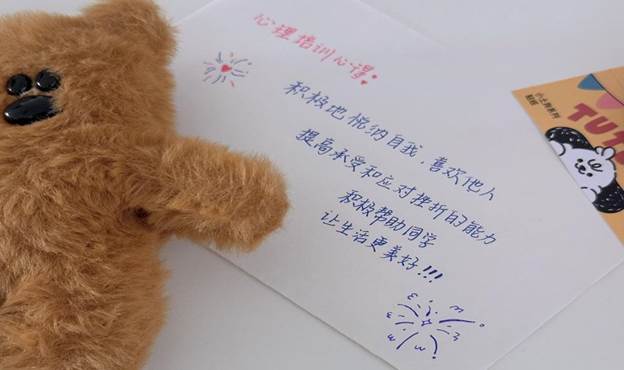 心理培训心得
积极地悦纳自我，喜欢他人
提高承受和应对挫折的能力
积极帮助同学
让生活更美好!!!